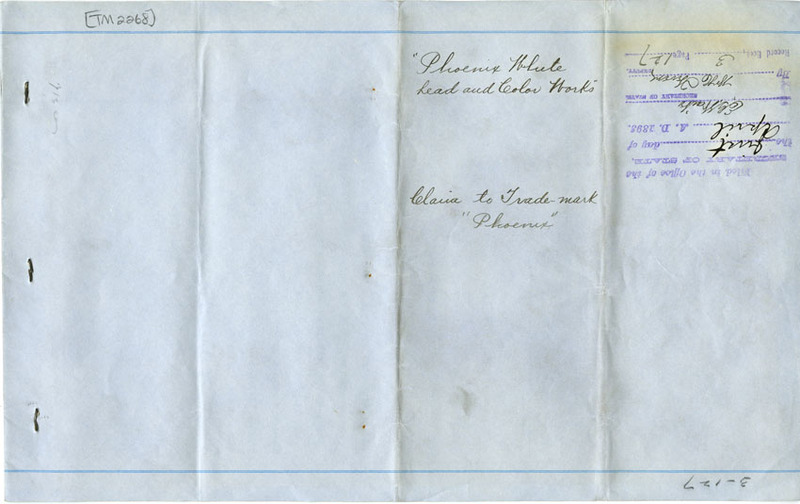 [TM2268]
"Phoenix White
Lead and Color Works"
Claim to Trade-mark
"Phoenix"
Filed in the Office of the
SECRETARY OF STATE,
the first day of
April A. D. 1895.
SECRETARY OF STATE.
By DEPUTY.
Record Book, 3 Page, 127
3-127